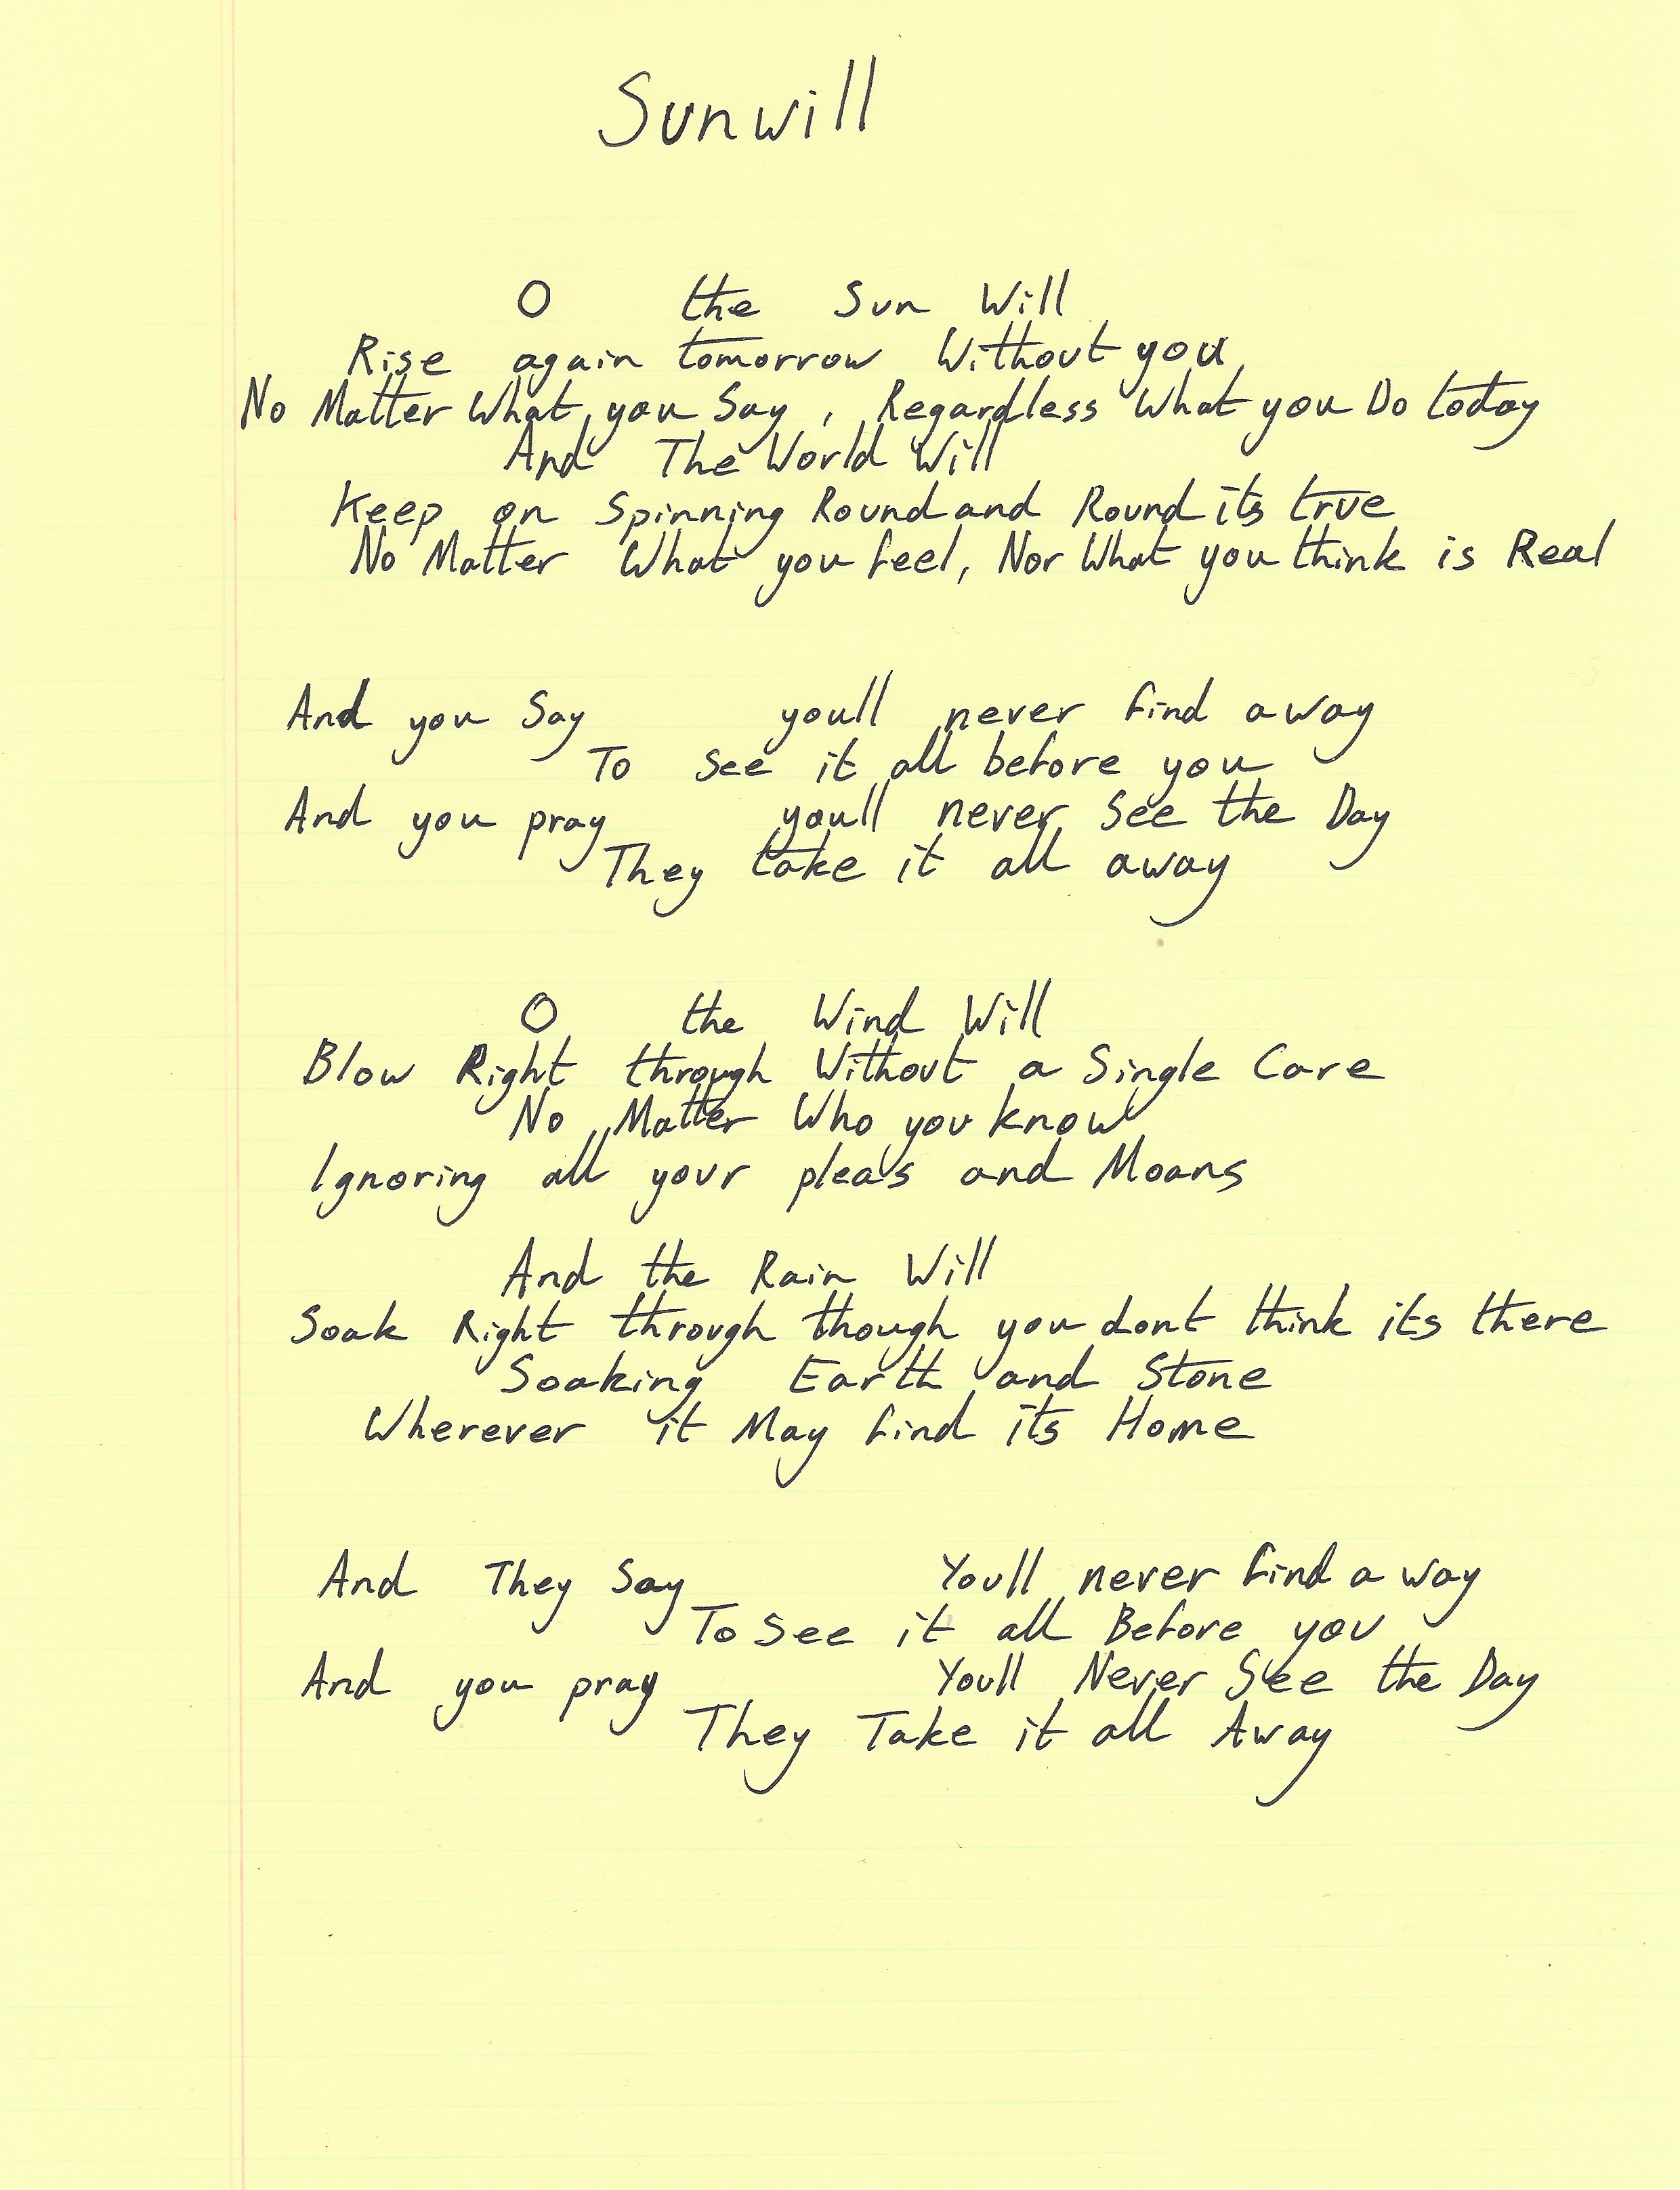 Sunwill
O the Sun Will
Rise again tomorrow Without you
No Matter What you Say, Regardless What you Do today
And The World Will
Keep on Spinning Round and Round its true
No Matter What you feel, Nor What you think is Real
And you Say youll never find away
To See it all before you
And you pray youll never See the Day
They take it all away
O the Wind Will
Blow Right through Without a Single Care
No Matter Who you know
Ignoring all your pleas and Moans
And the Rain Will
Soak Right through though you dont think its there
Soaking Earth and Stone
Wherever it May find its Home
And They Say Youll never find a way
To See it all Before you
And you pray Youll Never See the Day
They Take it all Away